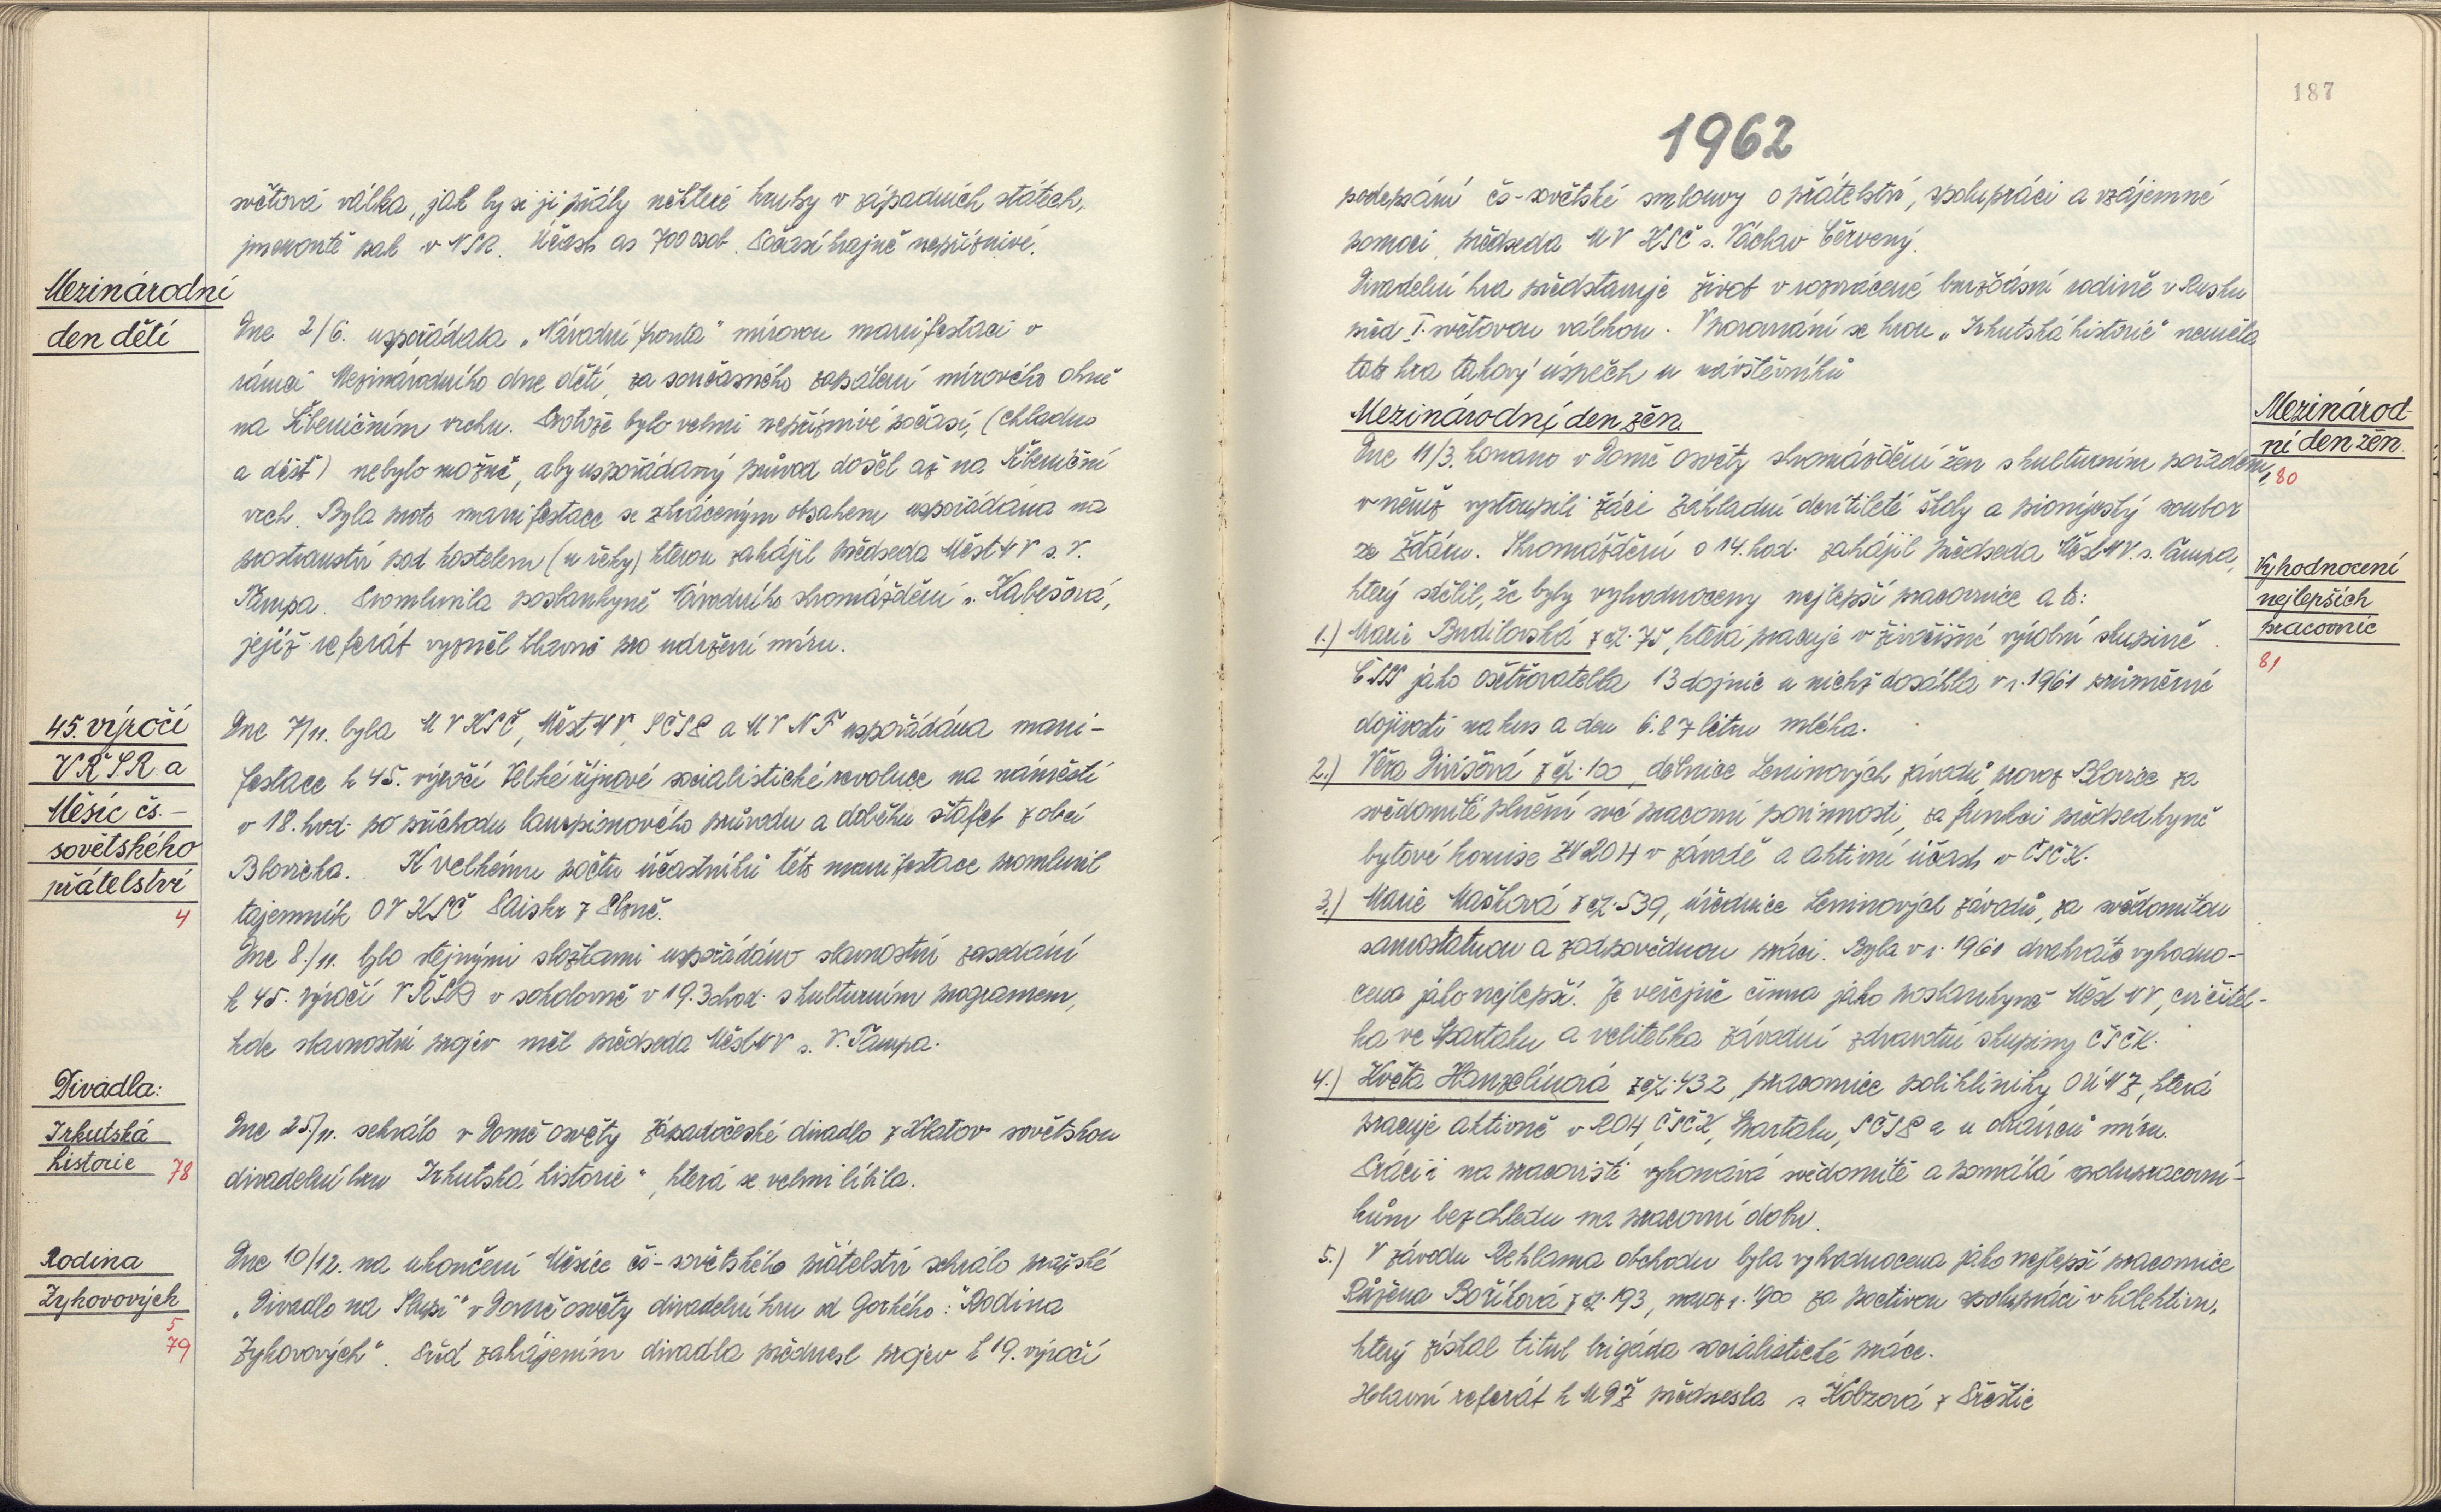 světová válka, jak by si ji přály některé kruhy v západních státech,
jmenovitě pak v NSR. Účast as 700 osob. Počasí krajně nepříznivé.
Mezinárodní
den dětí
Dne 2/6. uspořádala „Národní fronta" mírovou manifestaci v
rámci Mezinárodního dne dětí, za současného zapálení mírového ohně
na Šibeničním vrchu. Protože bylo velmi nepříznivé počasí, (chladno
a déšť) nebylo možné, aby uspořádaný průvod došel až na Šibeniční
vrch. Byla proto manifestace se zkráceným obsahem uspořádána na
prostranství pod kostelem (u řeky) kterou zahájil předseda MěstNV s. V.
Tampa. Promluvila poslankyně Národního shromáždění s. Kabešová,
jejíž referát vyzněl hlavně pro udržení míru.
45. výročí
VŘSR a
Měsíc čs.-
sovětského
přátelství
4
Dne 7/11. byla MV KSČ, MěstNV, SČSP a MV NF uspořádána mani-
festace k 45. výročí Velké říjnové socialistické revoluce na náměstí
v 18. hod. po příchodu lampionového průvodu a doběhu štafet z obcí
Blovicka. K velkému počtu účastníků této manifestace promluvil
tajemník OV KSČ Paiskr z Plzně.
Dne 8./11. bylo stejnými složkami uspořádáno slavnostní zasedání
k 45. výročí VŘSR v sokolovně v 19.30 hod. s kulturním programem,
kde slavnostní projev měl předseda MěstNV s. V. Tampa.
Divadla:
Irkutská
historie 78
Dne 25/11. sehrálo v Domě osvěty Západočeské divadlo z Klatov sovětskou
divadelní hru Irkutská historie", která se velmi líbila.
Rodina
Zykovových
5
79
Dne 10/12. na ukončení Měsíce čs-sovětského přátelství sehrálo pražské
„Divadlo na Slupi" v Domě osvěty divadelní hru od Gorkého: "Rodina
Zykovových". Před zahájením divadla přednesl projev k 19. výročí
187
1962
podepsání čs-sovětské smlouvy o přátelství, spolupráci a vzájemné
pomoci, předseda MV KSČ s. Václav Červený.
Divadelní hra představuje život v rozvrácené buržoasní rodině v Rusku
před I. světovou válkou. V porovnání se hrou „Irkutská historie" neměla
tato hra takový úspěch u návštěvníků
Mezinárodní den žen.
Mezinárod-
ní den žen.
80
Dne 11/3. konáno v Domě osvěty shromáždění žen s kulturním pořadem,
v němž vystoupili žáci Základní devítileté školy a pionýrský soubor
ze Ždáru. Shromáždění o 14. hod. zahájil předseda MěstNV. s. Tampa,
který sdělil, že byly vyhodnoceny nejlepší pracovnice a to:
Vyhodnocení
nejlepších
pracovnic
81
1.) Marie Budilovská z čp. 75, která pracuje v živočišné výrobní skupině
ČSSS jako ošetřovatelka 13 dojnic u nichž dosáhla v r. 1961 průměrné
dojivosti na kus a den 6.87 litru mléka.
2.) Věra Divišová z čp. 100, dělnice Leninových závodů provoz Blovice za
svědomité plnění své pracovní povinnosti, za funkci předsedkyně
bytové komise ZV ROH v závodě a aktivní účast v ČSČK.
3.) Marie Mašková z čp. 539, úřednice Leninových závodů, za svědomitou
samostatnou a zodpovědnou práci. Byla v r. 1961 dvakráte vyhodno-
cena jako nejlepší. Je veřejně činna jako poslankyně Měst NV, cvičitel-
ka ve Spartaku a velitelka závodní zdravotní skupiny ČSČK.
4.) Květa Hanzelínová z čp. 432, pracovnice polikliniky OÚNZ, která
pracuje aktivně v ROH, ČSČK, Spartaku, SČSP a u obránců míru.
Práci i na pracovišti vykonává svědomitě a pomáhá spolupracovní-
kům bez ohledu na pracovní dobu.
5.) V závodu Reklama obchodu byla vyhodnocena jako nejlepší pracovnice
Růžena Boříková z čp. 193, naroz. r. 1900 za poctivou spolupráci v kolektivu,
který získal titul brigáda socialistické práce.
Hlavní referát k MDŽ přednesla s. Kobzová z Přeštic